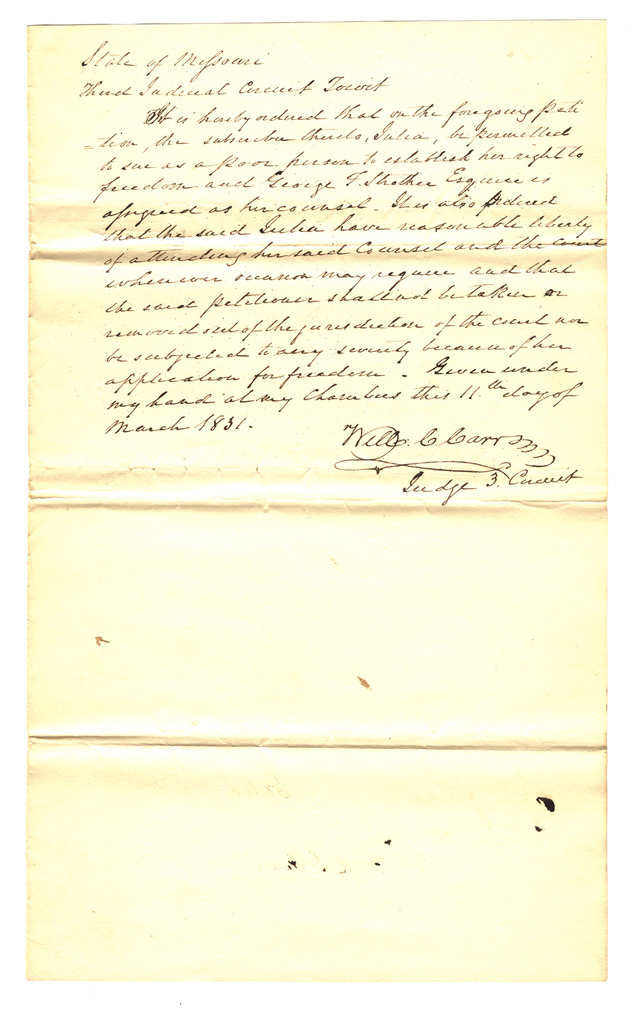 State of Missouri
Third Judicial Circuit Towit
It is hereby ordered that on the foregoing peti
=tion, the subscriber thereto, Julia, be permitted
to sue as a poor person to establish her right to
freedom and George F. Strother Esquire is
assigned as her counsel - It is also ordered
that the said Julia have reasonable liberty
of attending her said Counsel and the court
whenever occasion may require and that
the said petitioner shall not be taken or
removed out of the jurisdiction of the court nor
be subjected to any severity because of her
application for freedom - Given under
my hand at my Chambers this 11th day of
March 1831.
Will. C. Carr
Judge 3. Circuit